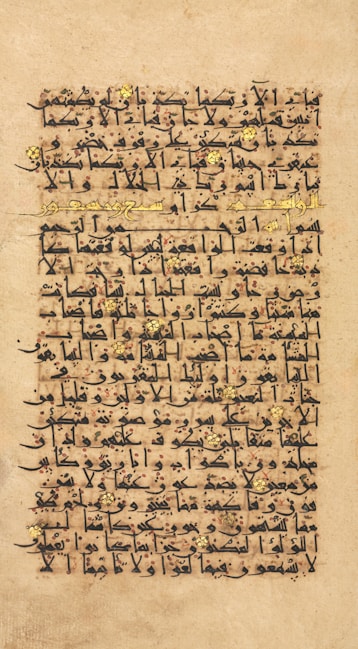 فباي الا ربكما تكذبان لم يطمثهن
انس قبلهم ولا جان فباي الا ربكما
تكذبان متكئين على رفرف خضر و
عبقري حسان فباي الا ربكما تكذبان
تبارك اسم ربك ذي الجلال والا
كرام الواقعة سبع وتسعون
اية بسم الله الرحمن الرحيم
اذا وقعت الواقعة ليس لوقعتها كا
ذبة خافضة رافعة اذا رجت الا
رض رجا وبست الجبال بسا فكانت
هباء منبثا وكنتم ازواجا ثلثة فاصحاب
الميمنة ما اصحاب الميمنة واصحاب
المشئمة ما اصحاب المشئمة والسابقون
السابقون اولئك المقربون في
جنات النعيم ثلة من الاولين وقليل من
الاخرين على سرر موضونة متكئين
عليها متقابلين يطوف عليهم ولدان
مخلدون باكواب واباريق وكاس
من معين لا يصدعون عنها ولا ينز
فون وفاكهة مما يتخيرون ولحم طير
مما يشتهون وحور عين كامثال
اللؤلؤ المكنون جزا بما كانوا يعملون
لا يسمعون فيها لغوا ولا تاثيما الا